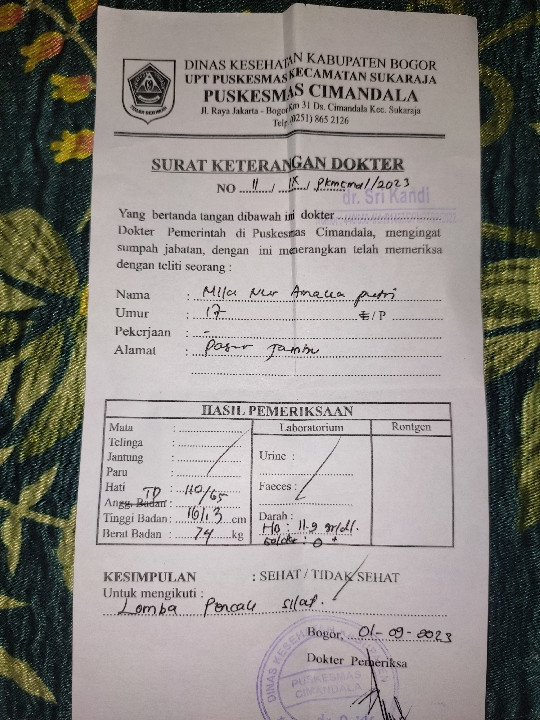 DINAS KESEHATAN KABUPATEN BOGOR
UPT PUSKESMAS KECAMATAN SUKARAJA
PUSKESMAS CIMANDALA
Jl. Raya Jakarta - Bogor Km 31 Ds. Cimandala Kec. Sukaraja
Telp. (0251) 865 2126
SURAT KETERANGAN DOKTER
NO 11 / IX / Pkmcmdl/2023
Yang bertanda tangan dibawah ini dokter dr. Sri Kandi
Dokter Pemerintah di Puskesmas Cimandala, mengingat
sumpah jabatan, dengan ini menerangkan telah memeriksa
dengan teliti seorang :
Nama : Mila Nur Amalia putri
Umur : 17 L/P
Pekerjaan : -
Alamat : Pasir Jambu
HASIL PEMERIKSAAN
Mata :
Telinga :
Jantung :
Paru :
Hati :
Angg. Badan : TD 110/65
Tinggi Badan : 161.3 cm
Berat Badan : 74 kg
Laboratorium
Urine :
Faeces :
Darah :
HB : 11.9 gr/dl.
Goldar : O +
Rontgen
KESIMPULAN : SEHAT / TIDAK SEHAT
Untuk mengikuti :
Lomba Pencak silat.
Bogor, 01-09-2023
Dokter Pemeriksa
DINAS KESEHATAN
PUSKESMAS
CIMANDALA